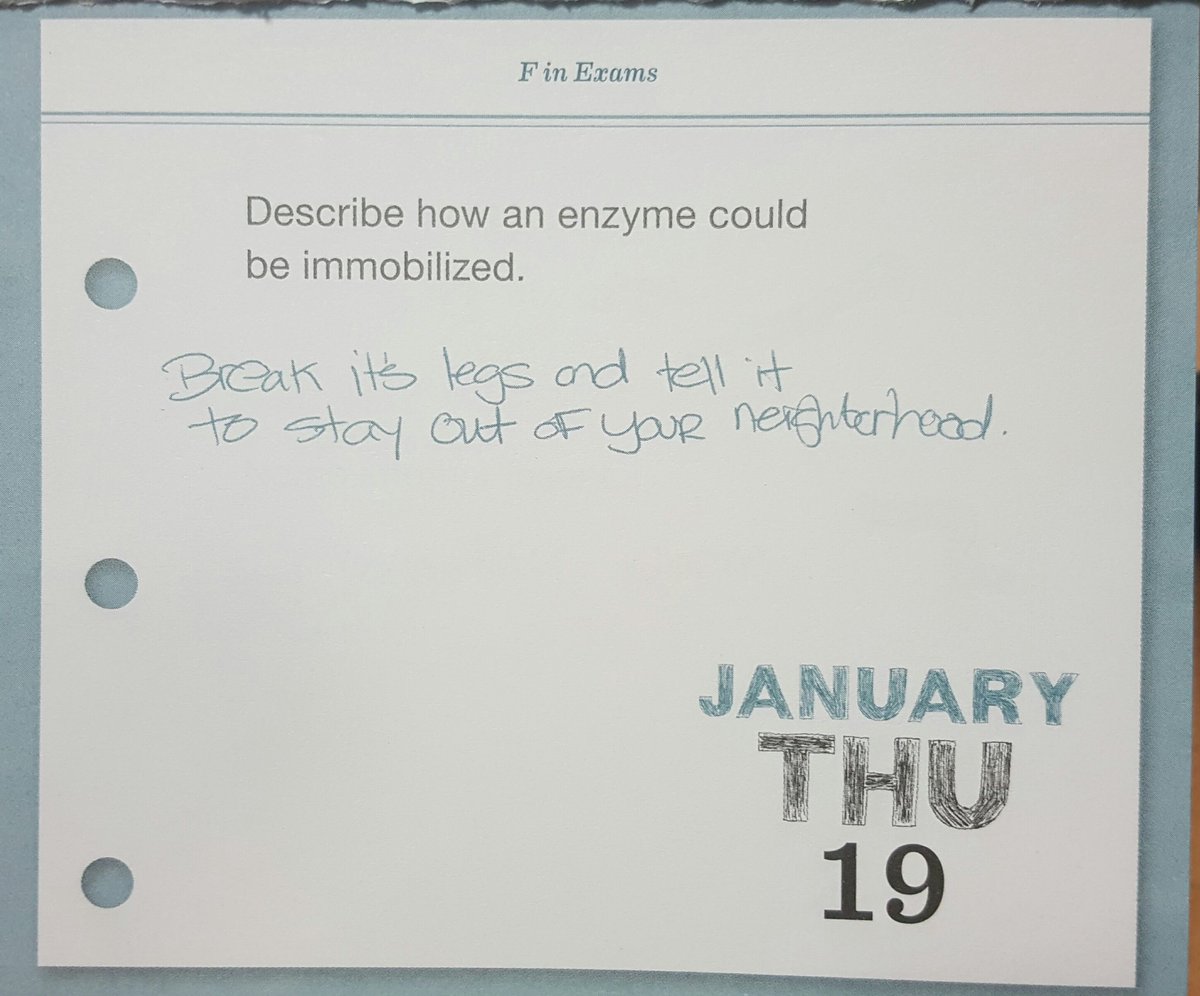 F in Exams
Describe how an enzyme could
be immobilized.
Break it's legs and tell it
to stay out of your neighborhood.
JANUARY
THU
19